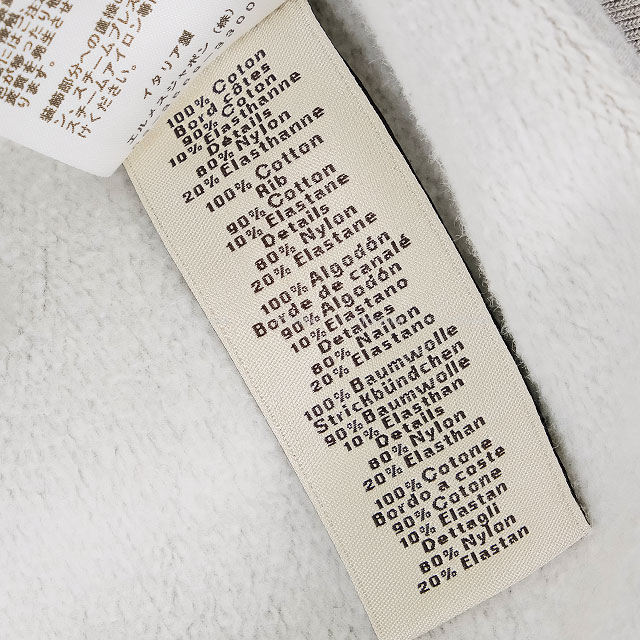 イタリア製
100% Coton
Bord Côtes
90% Coton
10% Elasthanne
Détails
80% Nylon
20% Elasthanne
100% Cotton
Rib
90% Cotton
10% Elastane
Details
80% Nylon
20% Elastane
100% Algodón
Borde de canalé
90% Algodón
10% Elastano
Detalles
80% Nailon
20% Elastano
100% Baumwolle
Strickbündchen
90% Baumwolle
10% Elasthan
Details
80% Nylon
20% Elasthan
100% Cotone
Bordo a coste
90% Cotone
10% Elastan
Dettagli
80% Nylon
20% Elastan